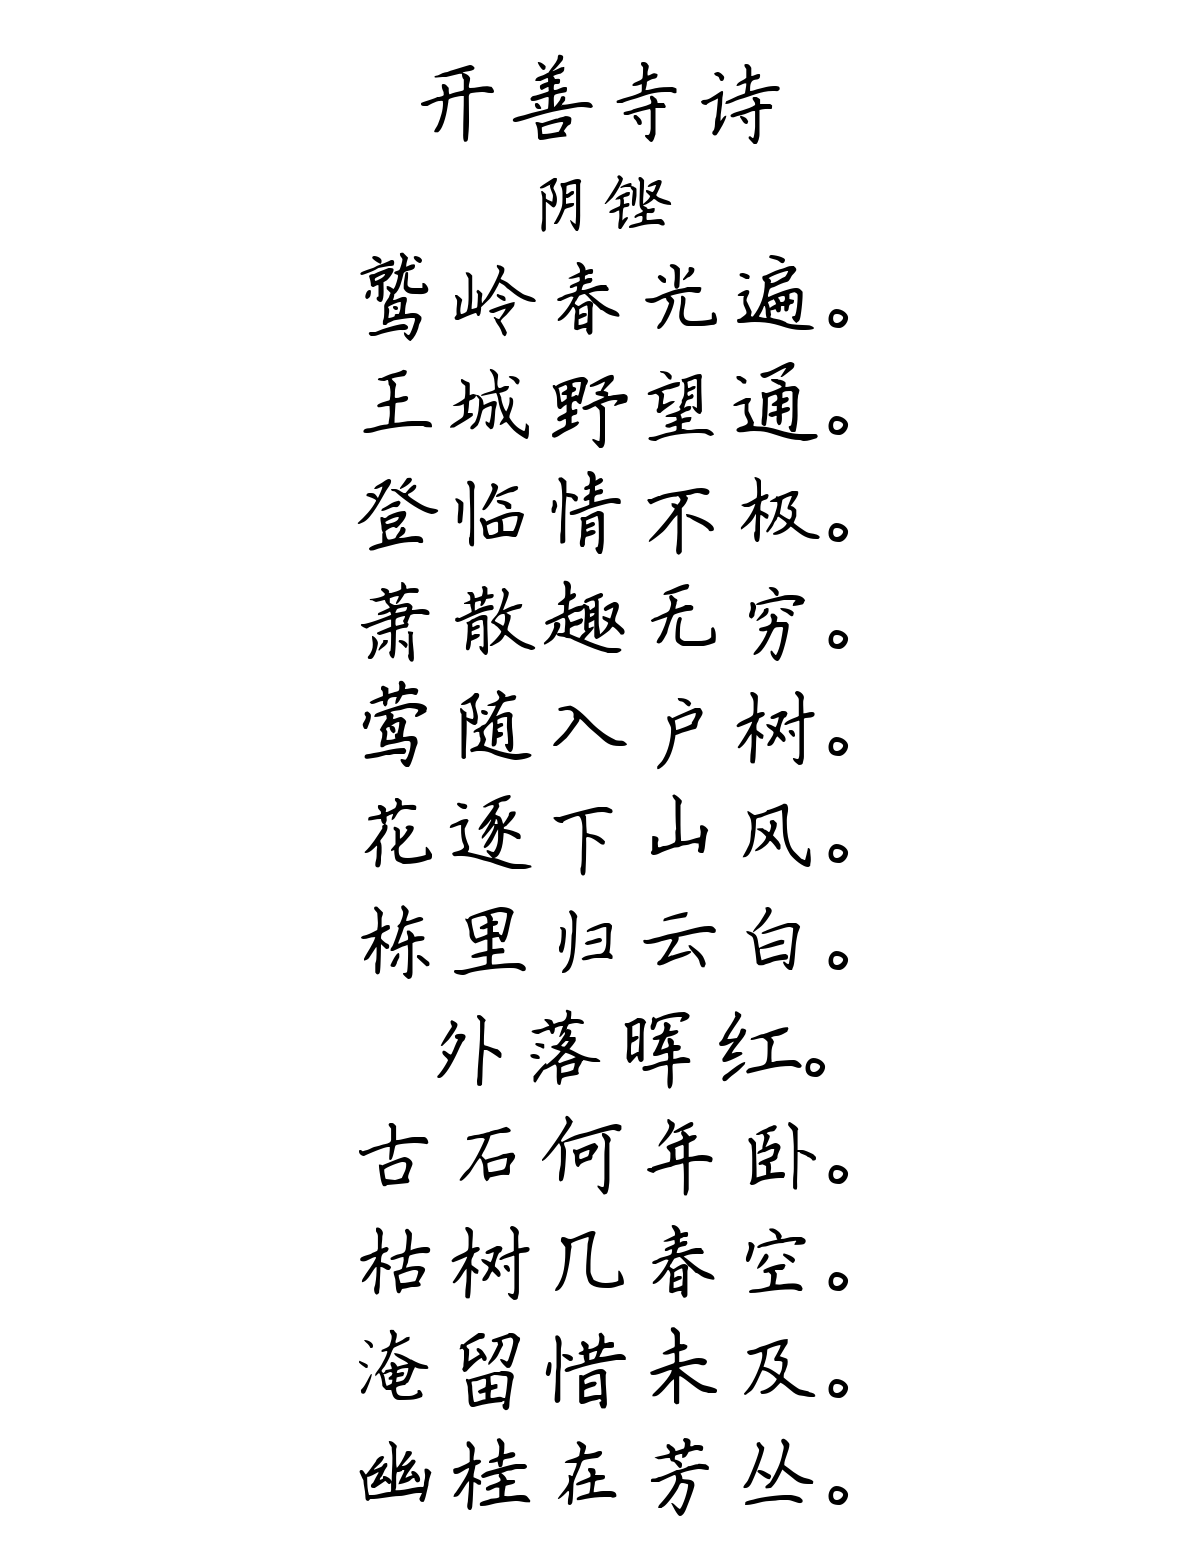 开善寺诗
阴铿
鹫岭春光遍。
王城野望通。
登临情不极。
萧散趣无穷。
莺随入户树。
花逐下山风。
栋里归云白。
外落晖红。
古石何年卧。
枯树几春空。
淹留惜未及。
幽桂在芳丛。